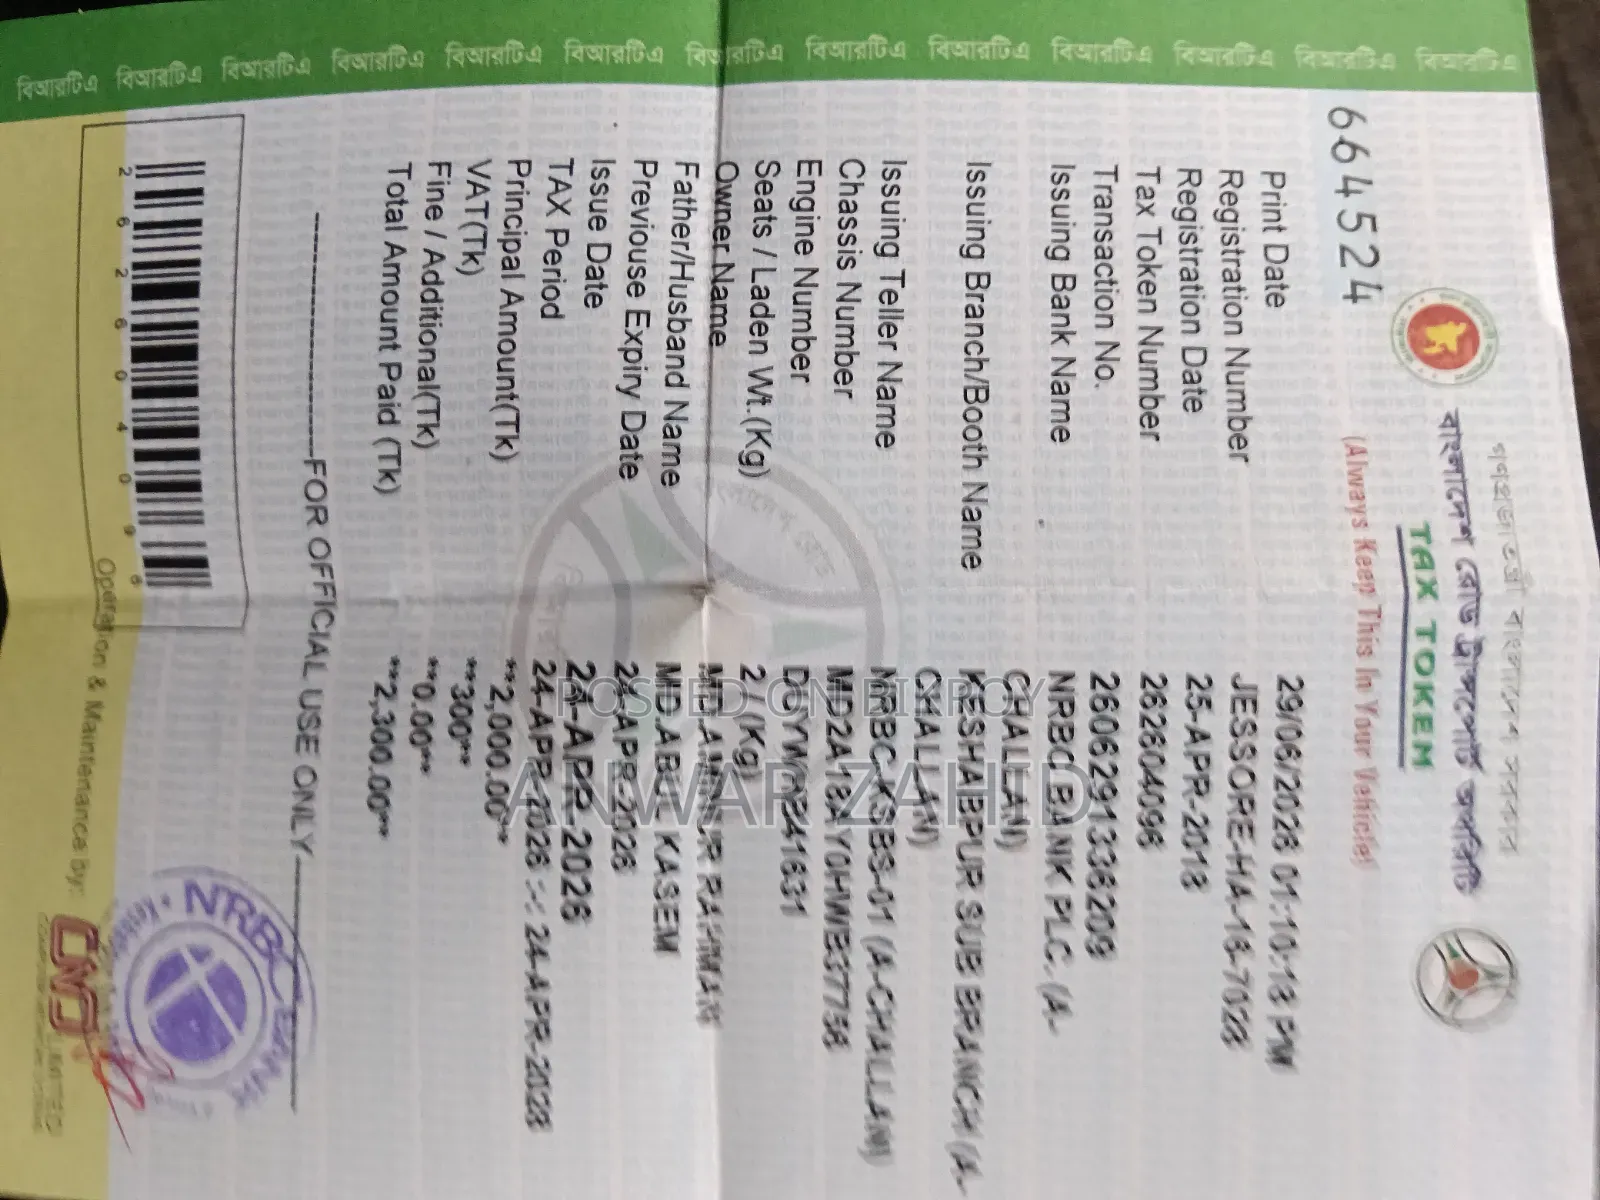 বিআরটিএ বিআরটিএ বিআরটিএ বিআরটিএ বিআরটিএ বিআরটিএ বিআরটিএ বিআরটিএ বিআরটিএ বিআরটিএ বিআরটিএ বিআরটিএ বিআরটিএ
গণপ্রজাতন্ত্রী বাংলাদেশ সরকার
বাংলাদেশ রোড ট্রান্সপোর্ট অথরিটি
TAX TOKEN
(Always Keep This In Your Vehicle)
6645244
Print Date 29/06/2026 01:10:13 PM
Registration Number JESSORE-HA-16-7028
Registration Date 25-APR-2018
Tax Token Number 262604096
Transaction No. 2606291336209
Issuing Bank Name NRBC BANK PLC. (A-
CHALLAN)
Issuing Branch/Booth Name KESHABPUR SUB BRANCH (A-
CHALLAN)
Issuing Teller Name NRBC-KSBS-01 (A-CHALLAN)
Chassis Number
Engine Number
Seats / Laden Wt.(Kg) 2 / (Kg)
Owner Name MD.AMINUR RAHMAN
Father/Husband Name MD.ABUL KASEM
Previouse Expiry Date 24-APR-2026
Issue Date 24-APR-2026
TAX Period 24-APR-2026 -: 24-APR-2028
Principal Amount(Tk) **2,000.00**
VAT(Tk) **300**
Fine / Additional(Tk) **0.00**
Total Amount Paid (Tk) **2,300.00**
POSTED ON BIKROY
ANWAR ZAHID
FOR OFFICIAL USE ONLY
2 6 2 6 0 4 0 9 6
Operation & Maintenance by:
CNS LIMITED
NRBC BANK